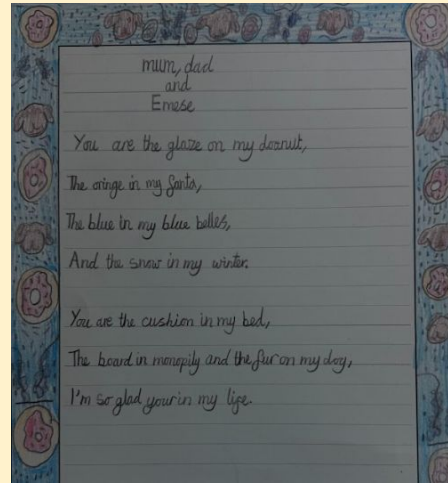 mum, dad
and
Emese
You are the glaze on my doanut,
The oringe in my fanta,
The blue in my blue belles,
And the snow in my winter.
You are the cushion in my bed,
The board in monopily and the fur on my dog,
I'm so glad your in my life.